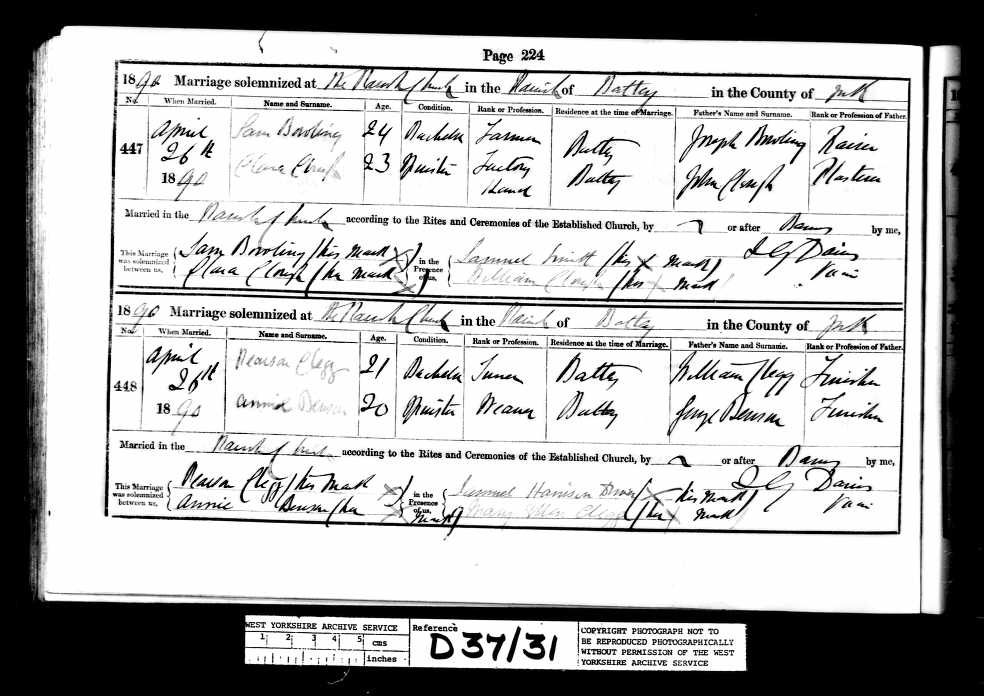 Page 224
1890 Marriage solemnized at the Parish Church in the Parish of Batley in the County of York
No. When Married. Name and Surname. Age. Condition. Rank or Profession. Residence at the time of Marriage. Father's Name and Surname. Rank or Profession of Father.
447 April 26th 1890
Sam Bowling 24 Bachelor Farmer Batley Joseph Bowling
Clara Clough 23 Spinster Factory Hand Batley John Clough Plasterer
Married in the Parish Church according to the Rites and Ceremonies of the Established Church, by or after Banns by me,
This Marriage was solemnized between us, Sam Bowling (his mark X) in the Presence of us, Samuel Smith (his X mark) Davis
Clara Clough (her mark X) William Clough (his X mark) Vicar
1890 Marriage solemnized at the Parish Church in the Parish of Batley in the County of York
No. When Married. Name and Surname. Age. Condition. Rank or Profession. Residence at the time of Marriage. Father's Name and Surname. Rank or Profession of Father.
448 April 26th 1890
Pearson Clegg 21 Bachelor Batley William Clegg Finisher
Annie Benson 20 Spinster Weaver Batley George Benson Finisher
Married in the Parish Church according to the Rites and Ceremonies of the Established Church, by or after Banns by me,
This Marriage was solemnized between us, Pearson Clegg (his mark X) in the Presence of us, Samuel Harrison (X his mark) Davis
Annie Benson (her X mark) Mary Clegg (her X mark) Vicar
WEST YORKSHIRE ARCHIVE SERVICE
1 2 3 4 5 cms
inches
Reference
D37/31
COPYRIGHT PHOTOGRAPH NOT TO
BE REPRODUCED PHOTOGRAPHICALLY
WITHOUT PERMISSION OF THE WEST
YORKSHIRE ARCHIVE SERVICE